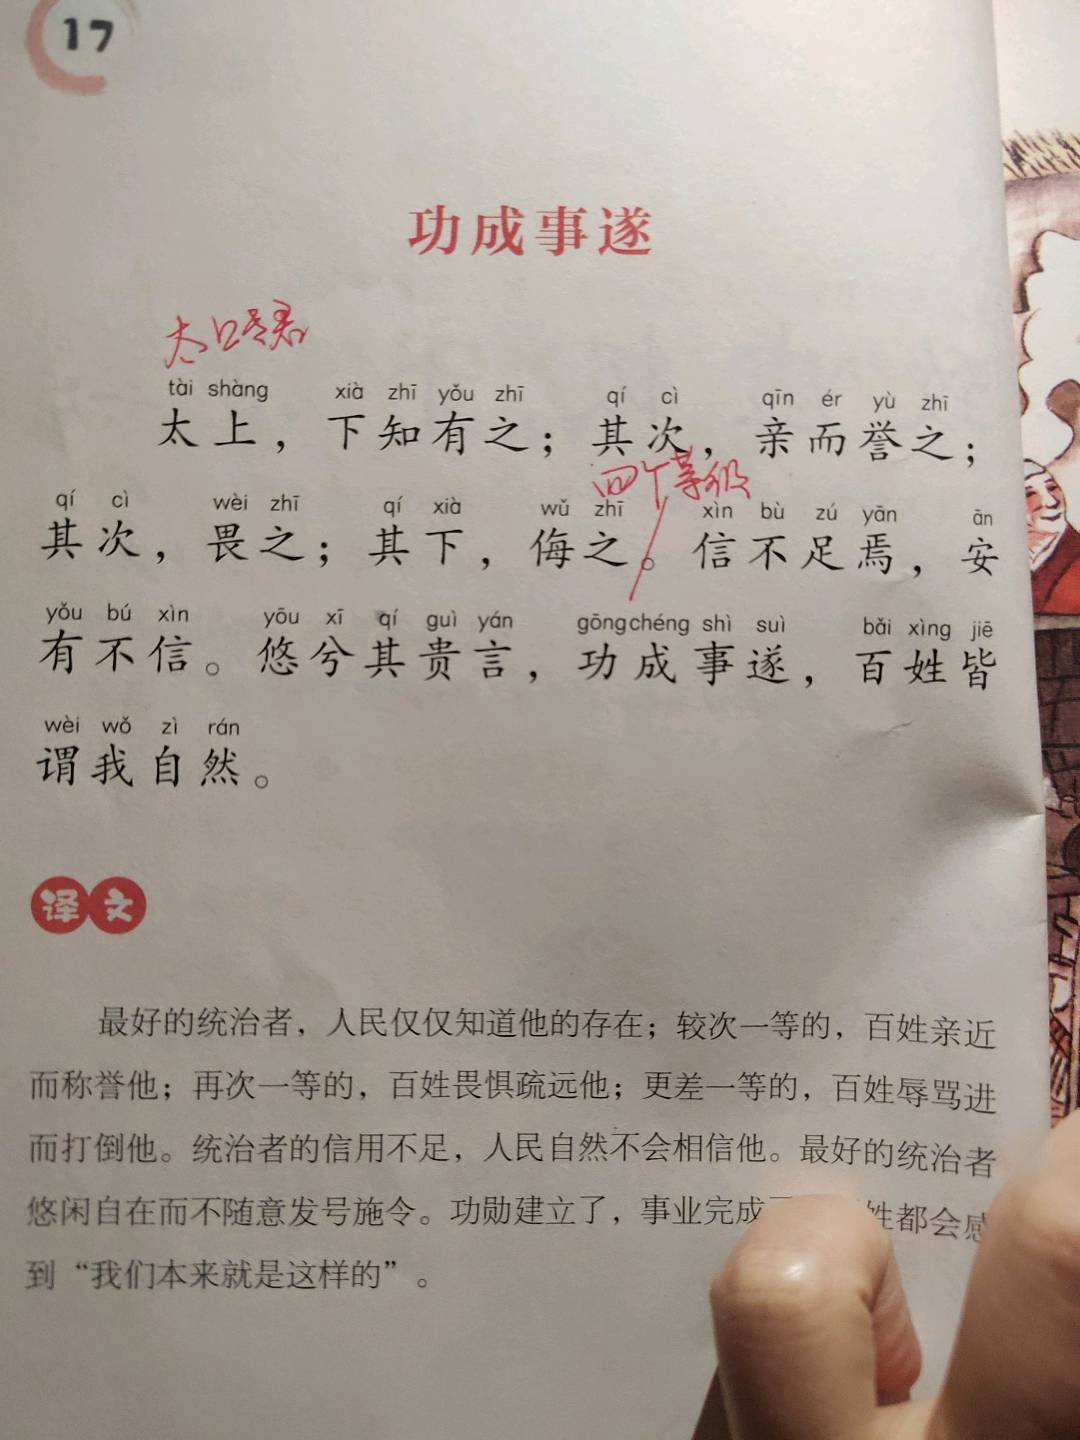 17
功成事遂
tài shàng xià zhī yǒu zhī qí cì qīn ér yù zhī
太上，下知有之；其次，亲而誉之；
四个等级
qí cì wèi zhī qí xià wǔ zhī xìn bù zú yān ān
其次，畏之；其下，侮之。信不足焉，安
yǒu bú xìn yōu xī qí guì yán gōng chéng shì suì bǎi xìng jiē
有不信。悠兮其贵言，功成事遂，百姓皆
wèi wǒ zì rán
谓我自然。
译文
最好的统治者，人民仅仅知道他的存在；较次一等的，百姓亲近
而称誉他；再次一等的，百姓畏惧疏远他；更差一等的，百姓辱骂进
而打倒他。统治者的信用不足，人民自然不会相信他。最好的统治者
悠闲自在而不随意发号施令。功勋建立了，事业完成 姓都会感
到“我们本来就是这样的”。